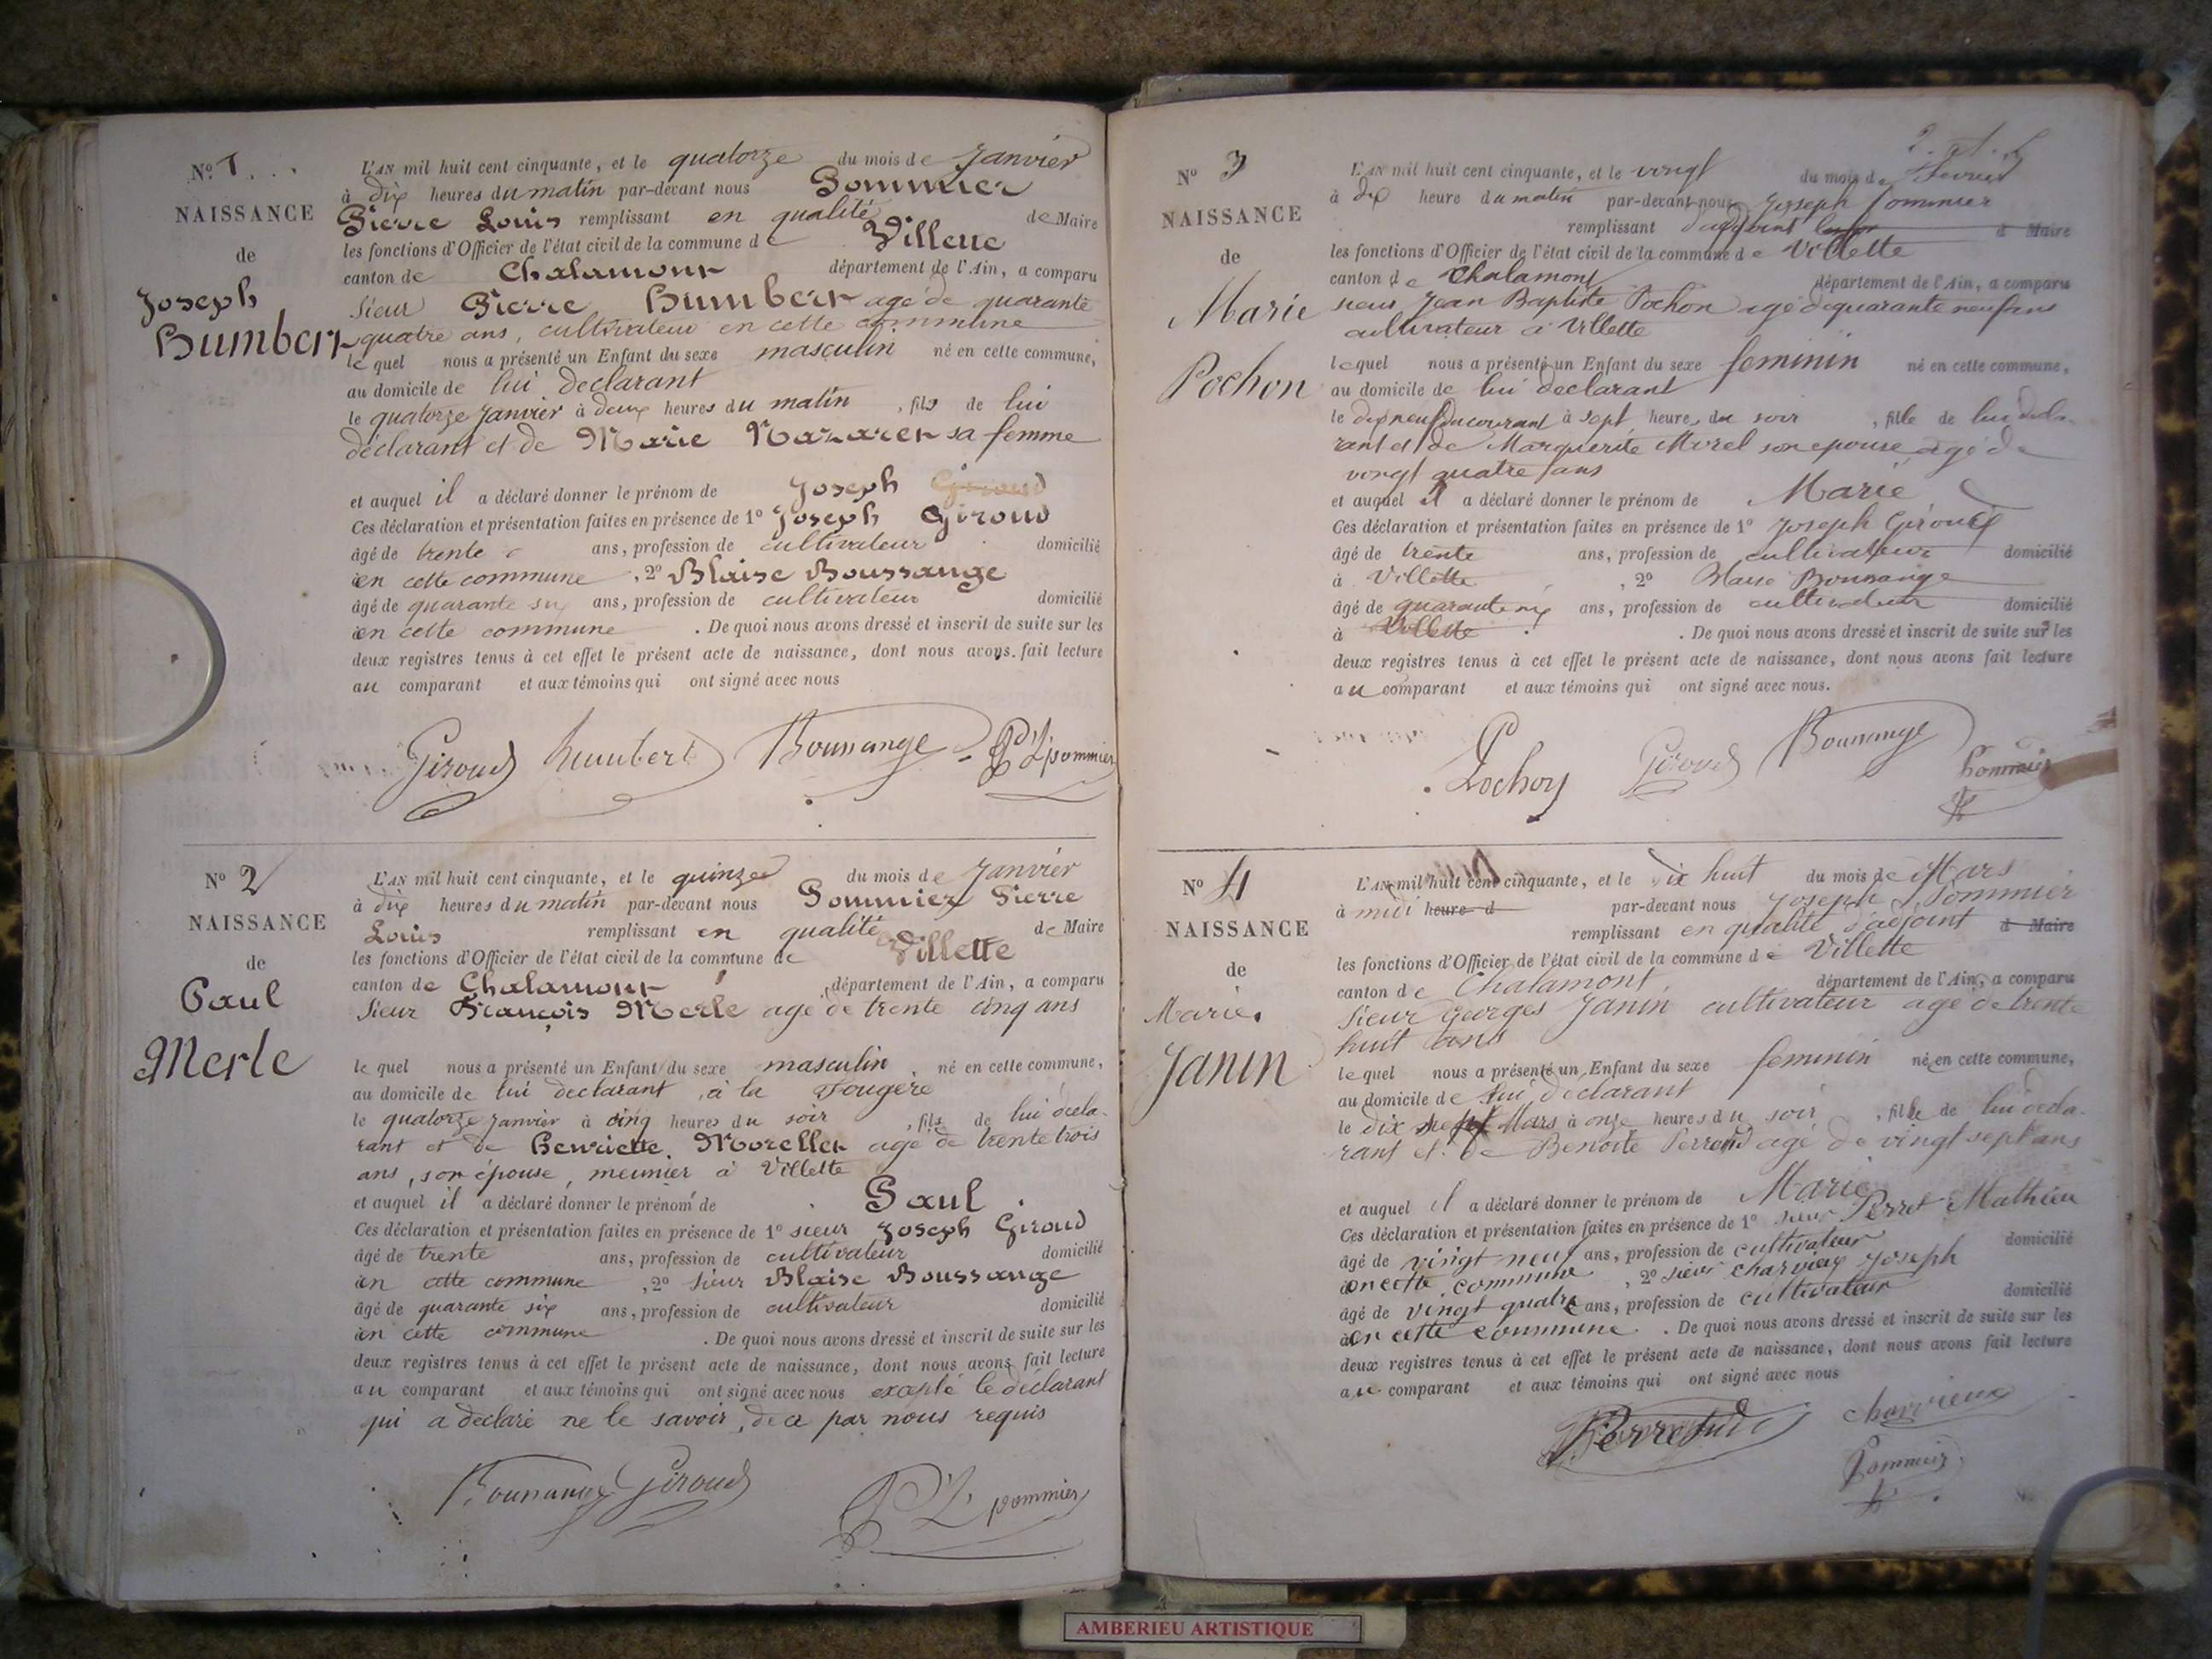 N° 1
NAISSANCE
de
Joseph
Humbert
L'AN mil huit cent cinquante, et le quatorze du mois de Janvier
à dix heures du matin par-devant nous Pommier
Pierre Louis remplissant en qualité de Maire
les fonctions d'Officier de l'état civil de la commune de Villette
canton de Chalamont département de l'Ain, a comparu
Sieur Pierre Humbert agé de quarante
quatre ans, cultivateur en cette commune
le quel nous a présenté un Enfant du sexe masculin né en cette commune,
au domicile de lui declarant
le quatorze Janvier à deux heures du matin, fils de lui
déclarant et de Marie Nazaret sa femme
et auquel il a déclaré donner le prénom de Joseph Giroud
Ces déclaration et présentation faites en présence de 1° Joseph Giroud
âgé de trente ans, profession de cultivateur domicilié
en cette commune, 2° Blaise Boussange
âgé de quarante six ans, profession de cultivateur domicilié
en cette commune. De quoi nous avons dressé et inscrit de suite sur les
deux registres tenus à cet effet le présent acte de naissance, dont nous avons fait lecture
au comparant et aux témoins qui ont signé avec nous
Giroud humbert Boussange P L pommier
N° 2
NAISSANCE
de
Paul
Merle
L'AN mil huit cent cinquante, et le quinze du mois de Janvier
à dix heures du matin par-devant nous Pommier Pierre
Louis remplissant en qualité de Maire
les fonctions d'Officier de l'état civil de la commune de Villette
canton de Chalamont département de l'Ain, a comparu
Sieur François Merle agé de trente cinq ans
le quel nous a présenté un Enfant du sexe masculin né en cette commune,
au domicile de lui declarant à la Fougere
le quatorze Janvier à cinq heures du soir, fils de lui décla-
rant et de Henriette Morellet agé de trente trois
ans, son épouse, meunier à Villette
et auquel il a déclaré donner le prénom de Paul
Ces déclaration et présentation faites en présence de 1° sieur Joseph Giroud
âgé de trente ans, profession de cultivateur domicilié
en cette commune, 2° sieur Blaise Boussange
âgé de quarante six ans, profession de cultivateur domicilié
en cette commune. De quoi nous avons dressé et inscrit de suite sur les
deux registres tenus à cet effet le présent acte de naissance, dont nous avons fait lecture
au comparant et aux témoins qui ont signé avec nous excepté le déclarant
qui a declaré ne le savoir, de ce par nous requis
Boussange Giroud P L pommier
N° 3
NAISSANCE
de
Marie
Pochon
L'AN mil huit cent cinquante, et le vingt du mois de Fevrier
à dix heure du matin par-devant nous Joseph Pommier
remplissant d'adjoint d Maire
les fonctions d'Officier de l'état civil de la commune de Villette
canton de Chalamont département de l'Ain, a comparu
sieur Jean Baptiste Pochon agé de quarante neuf ans
cultivateur à Villette
lequel nous a présenté un Enfant du sexe feminin né en cette commune,
au domicile de lui declarant
le dix neuf du courant à sept heure du soir, fille de lui decla-
rant et de Marguerite Morel son epouse agé de
vingt quatre ans
et auquel il a déclaré donner le prénom de Marie
Ces déclaration et présentation faites en présence de 1° Joseph Giroud
âgé de trente ans, profession de cultivateur domicilié
à Villette, 2° Blaise Boussange
âgé de quarante six ans, profession de cultivateur domicilié
à Villette. De quoi nous avons dressé et inscrit de suite sur les
deux registres tenus à cet effet le présent acte de naissance, dont nous avons fait lecture
au comparant et aux témoins qui ont signé avec nous.
Pochon Giroud Boussange Pommier
N° 4
NAISSANCE
de
Marie
Janin
L'AN mil huit cent cinquante, et le dix huit du mois de Mars
à midi heure d par-devant nous Joseph Pommier
remplissant en qualité d'adjoint d Maire
les fonctions d'Officier de l'état civil de la commune de Villette
canton de Chalamont département de l'Ain, a comparu
Sieur Georges Janin cultivateur agé de trente
huit ans
lequel nous a présenté un Enfant du sexe feminin né en cette commune,
au domicile de lui déclarant
le dix sept Mars à onze heures du soir, fille de lui decla-
rant et de Benoite Perraud agé de vingt sept ans
et auquel il a déclaré donner le prénom de Marie
Ces déclaration et présentation faites en présence de 1° sieur Perret Mathieu
âgé de vingt neuf ans, profession de cultivateur domicilié
en cette commune, 2° sieur Charvieux Joseph
âgé de vingt quatre ans, profession de cultivateur domicilié
en cette commune. De quoi nous avons dressé et inscrit de suite sur les
deux registres tenus à cet effet le présent acte de naissance, dont nous avons fait lecture
au comparant et aux témoins qui ont signé avec nous
charvieux
Pommier
AMBERIEU ARTISTIQUE